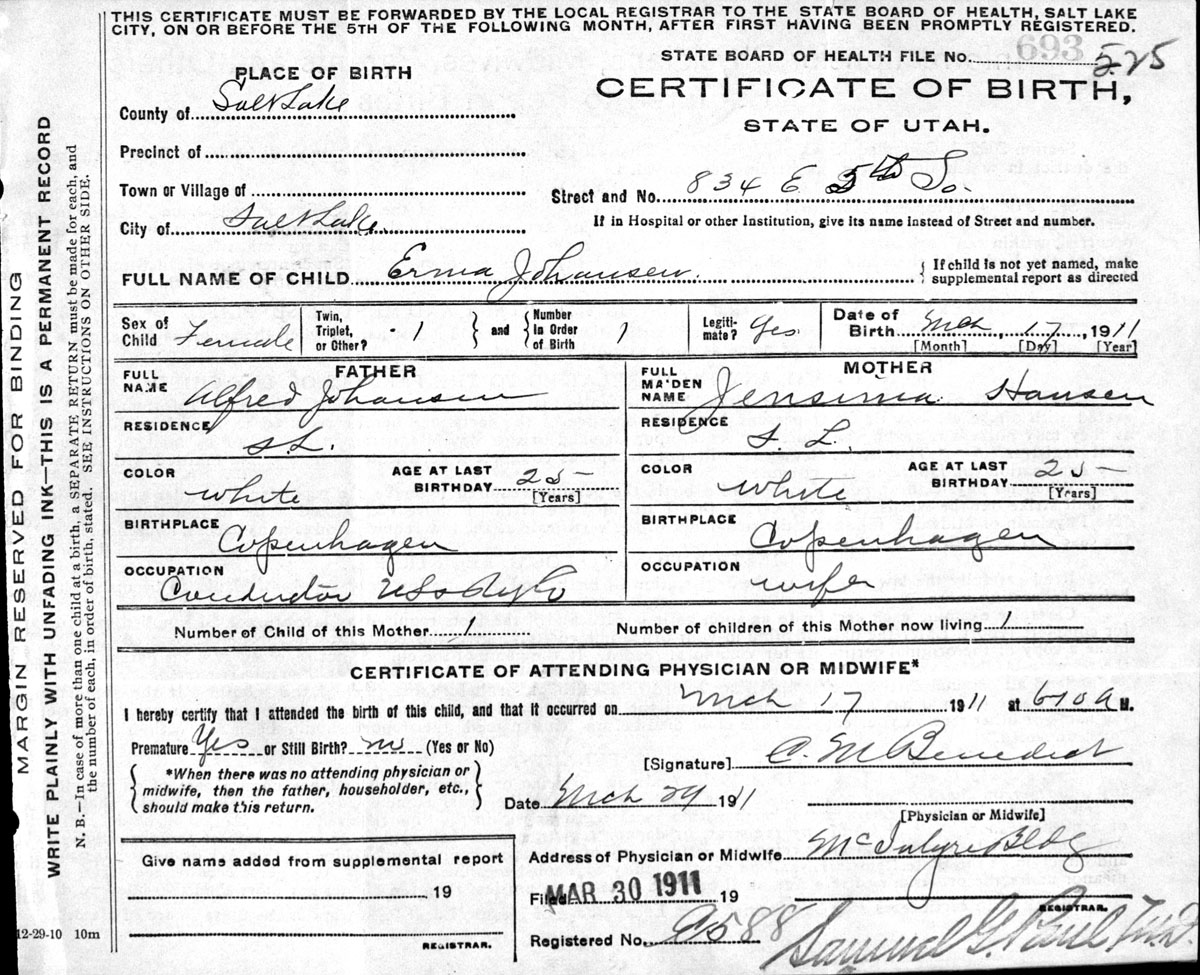 THIS CERTIFICATE MUST BE FORWARDED BY THE LOCAL REGISTRAR TO THE STATE BOARD OF HEALTH, SALT LAKE
CITY, ON OR BEFORE THE 5TH OF THE FOLLOWING MONTH, AFTER FIRST HAVING BEEN PROMPTLY REGISTERED.
693
STATE BOARD OF HEALTH FILE No. 525
PLACE OF BIRTH
CERTIFICATE OF BIRTH,
County of Salt Lake
STATE OF UTAH.
Precinct of
Town or Village of
Street and No. 834 E 5th So.
City of Salt Lake
If in Hospital or other Institution, give its name instead of Street and number.
FULL NAME OF CHILD Erma Johansen
{ If child is not yet named, make
supplemental report as directed
Sex of Child Female
Twin, Triplet, or Other? 1
} and {
Number In Order of Birth 1
Legiti-mate? Yes
Date of Birth Mch 17, 1911
[Month] [Day] [Year]
FATHER
FULL NAME Alfred Johansen
RESIDENCE S.L.
COLOR White
AGE AT LAST BIRTHDAY 25
[Years]
BIRTHPLACE Copenhagen
OCCUPATION Conductor
MOTHER
FULL MAIDEN NAME Jensinia Hansen
RESIDENCE S. L.
COLOR White
AGE AT LAST BIRTHDAY 25
[Years]
BIRTHPLACE Copenhagen
OCCUPATION wife
Number of Child of this Mother 1
Number of children of this Mother now living 1
CERTIFICATE OF ATTENDING PHYSICIAN OR MIDWIFE*
I hereby certify that I attended the birth of this child, and that it occurred on Mch 17 1911 at 610 a M.
Premature Yes or Still Birth? no (Yes or No)
[Signature] C. M. Benedict
{ *When there was no attending physician or
midwife, then the father, householder, etc.,
should make this return. }
Date Mch 29 1911
[Physician or Midwife]
Give name added from supplemental report
19
REGISTRAR.
Address of Physician or Midwife McIntyre Bldg
Filed MAR 30 1911 19
REGISTRAR.
Registered No. 588
Samuel G. Paul, M.D.
12-29-10 10m
MARGIN RESERVED FOR BINDING
WRITE PLAINLY WITH UNFADING INK—THIS IS A PERMANENT RECORD
N. B.—In case of more than one child at a birth, a SEPARATE RETURN must be made for each, and
the number of each, in order of birth, stated. SEE INSTRUCTIONS ON OTHER SIDE.